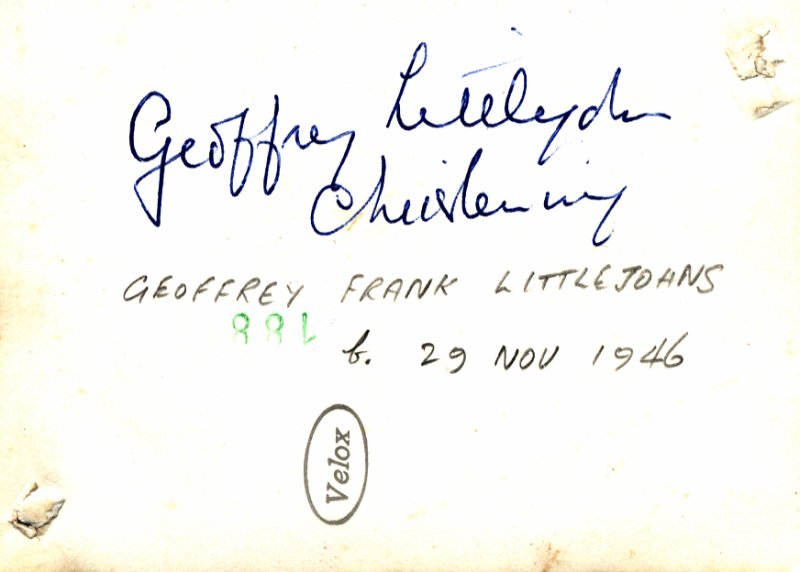 Geoffrey Littlejohn
Christening
GEOFFREY FRANK LITTLEJOHNS
188
b. 29 NOV 1946
Velox